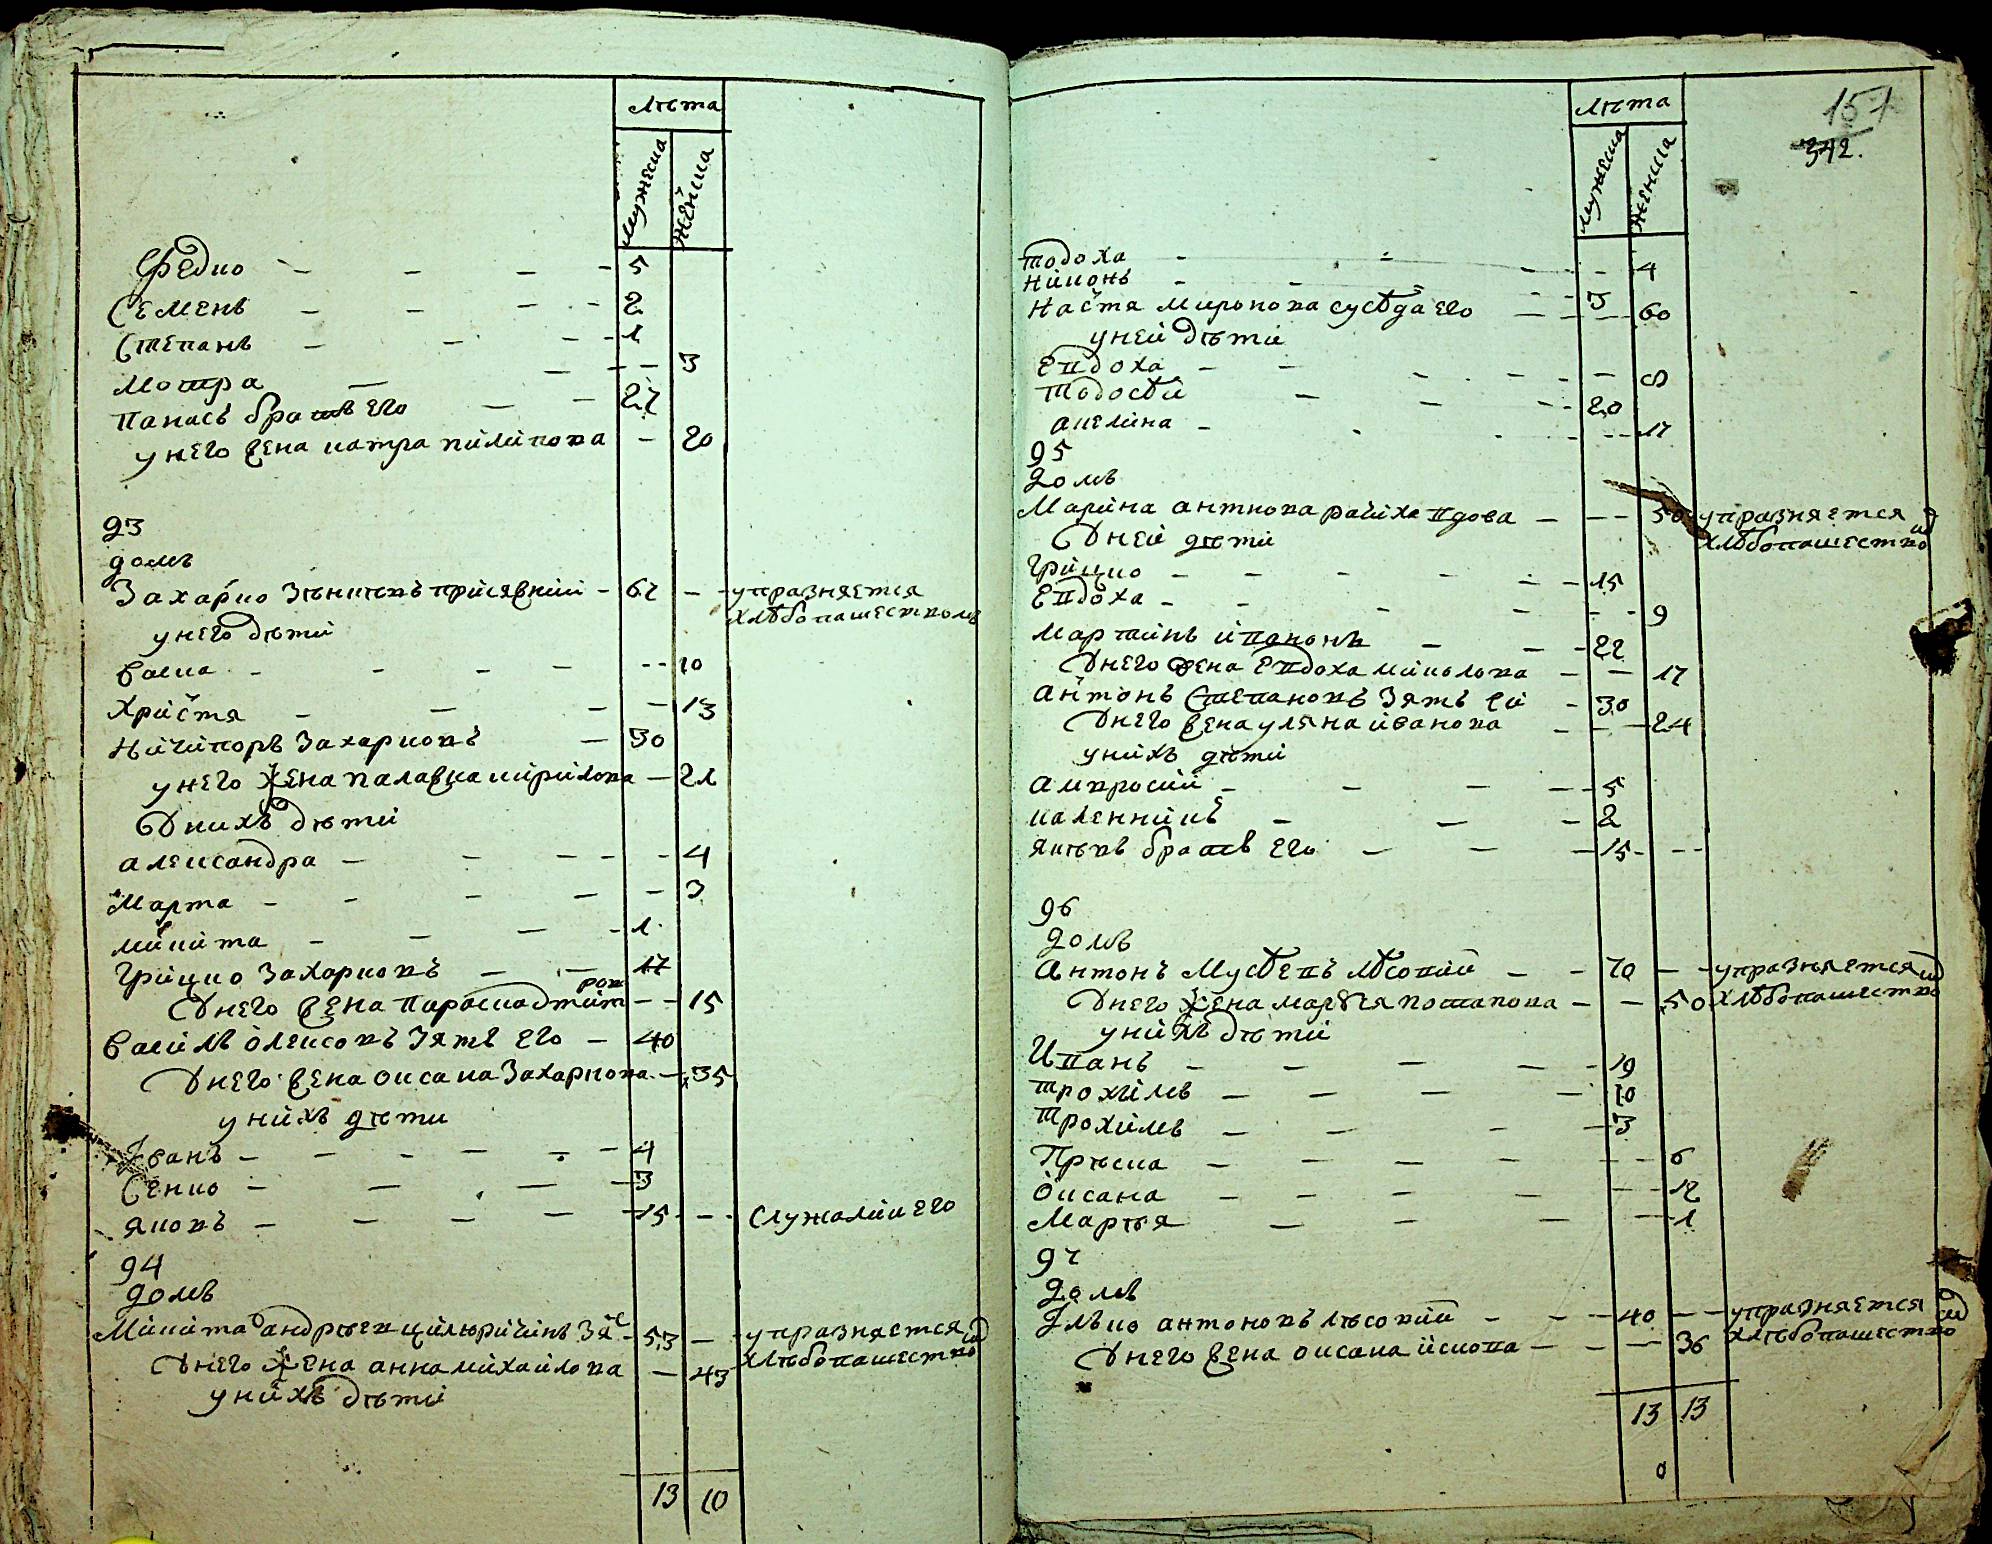 лѣта
мужеска
женска
Федко — — — — 5
Семенъ — — — — 2
Степанъ — — — — 1
Мотра — — — — 3
Панасъ братъ его — — 27
у него жена катра пилипова — 20
93
домъ
Захарко Зѣнцѣвъ присяжний — 67 — — упражняется
хлѣбопашествомъ
у него дѣти
васка — — — — — 10
Христя — — — — 13
Ничипоръ Захарковъ — 30
у него жена палажка кирилова — 21
У них дѣти
александра — — — — — 4
Марта — — — — — 3
микита — — — — 1
Грицко Захарковъ — — 17
У него жена Параска дмит — — 15
ров
василь олексовъ Зять его — 40
У него жена оксана Захаркова — 35
у нихъ дѣти
Іванъ — — — — — — 4
Сенко — — — — 3
яковъ — — — — 15 — — служалий его
94
домъ
Микита андрѣев цилюричинъ Зя — 53 — упражняется
хлѣбопашество
У него жена анна михайлова — 43
у нихъ дѣти
13 10
лѣта
мужеска
женска
151
342.
тодоха — — — — 4
никонъ — — — 3
настя миронова сусѣда его — — 60
у ней дѣти
Евдоха — — — — — — 8
тодосѣй — — — 20
акелина — — — 17
95
домъ
Марина антнова райиха вдова — — — 50 упражняется
хлѣбопашество
У ней дѣти
Грицко — — — — — — 15
Евдоха — — — — — — 9
мартинъ ивановъ — — — 22
У него жена Евдоха миколова — — 17
антонъ степановъ Зять ей — 30
У него жена уляна иванова — — — 24
у нихъ дѣти
амвросий — — — — — 5
каленникъ — — — 2
якѣвъ братъ его — — — 15 — — —
96
домъ
Антонъ Мусѣевъ лѣсовий — — 70 — — упражняется
хлѣбопашество
У него жена марѣя потапова — — 50
у нихъ дѣти
Иванъ — — — — — 19
трохимъ — — — — 10
Трохимъ — — — — 3
Прѣска — — — — — — 6
Оксана — — — — — — 12
Марѣя — — — — 1
97
домъ
Ілько антоновъ лѣсовий — — — 40 — — упражняется
хлѣбопашество
У него жена оксана искова — — — 36
13 13
0